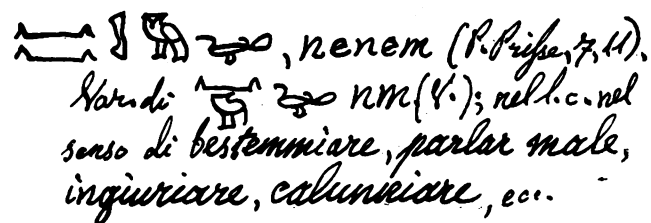 , nenem (P. Prisse, 7, 11).
Var. di nm (V.); nel l. c. nel
senso di bestemmiare, parlar male,
ingiuriare, calunniare, ecc.